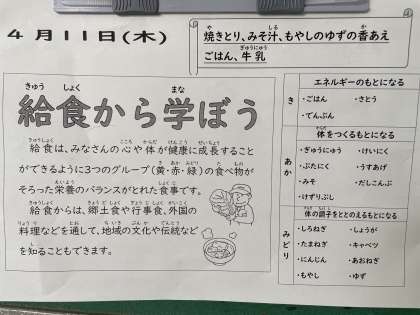 4月11日(木)
焼きとり、みそ汁、もやしのゆずの香あえ
ごはん、牛乳
給食から学ぼう
給食は、みなさんの心や体が健康に成長すること
ができるように3つのグループ(黄・赤・緑)の食べ物が
そろった栄養のバランスがとれた食事です。
給食からは、郷土食や行事食、外国の
料理などを通して、地域の文化や伝統など
を知ることもできます。
き
エネルギーのもとになる
・ごはん ・さとう
・でんぷん
あか
体をつくるもとになる
・ぎゅうにゅう ・けいにく
・ぶたにく ・うすあげ
・みそ ・だしこんぶ
・けずりぶし
みどり
体の調子をととのえるもとになる
・しろねぎ ・しょうが
・たまねぎ ・キャベツ
・にんじん ・あおねぎ
・もやし ・ゆず